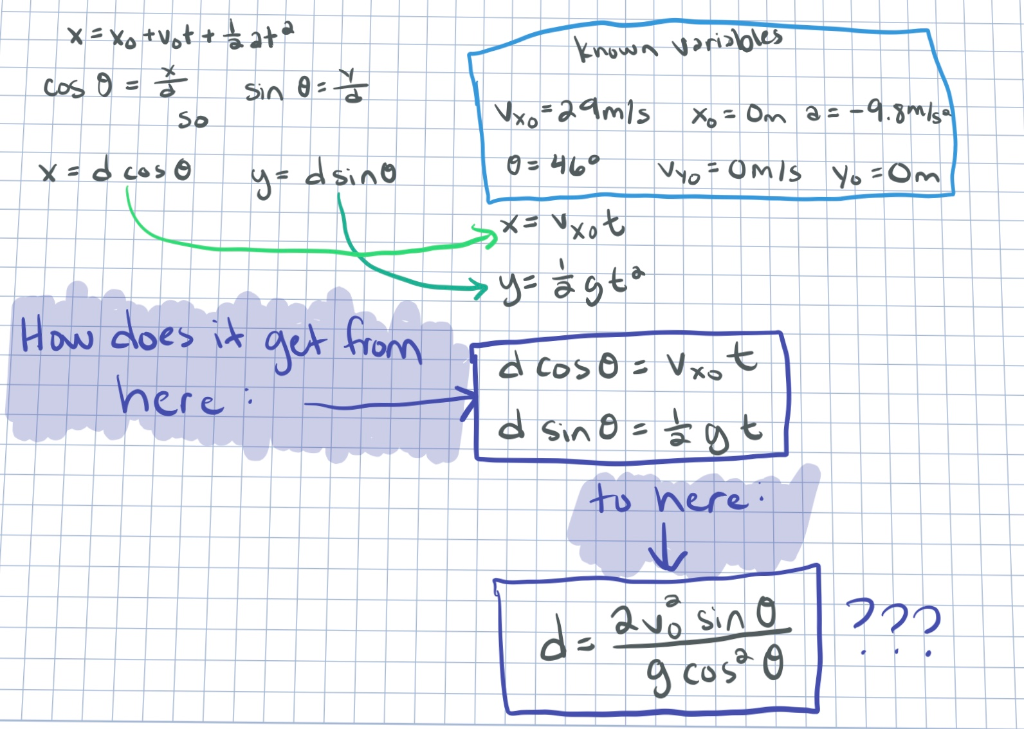 x = x₀ + v₀t + ½ at²
cos θ = x/d sin θ = y/d
so
x = d cos θ y = d sin θ
known variables
Vx₀ = 29 m/s x₀ = 0m a = -9.8 m/s²
θ = 46° Vy₀ = 0 m/s y₀ = 0m
x = Vx₀ t
y = ½ g t²
How does it get from
here:
d cos θ = Vx₀ t
d sin θ = ½ g t
to here:
d = 2v₀² sin θ / g cos² θ
???